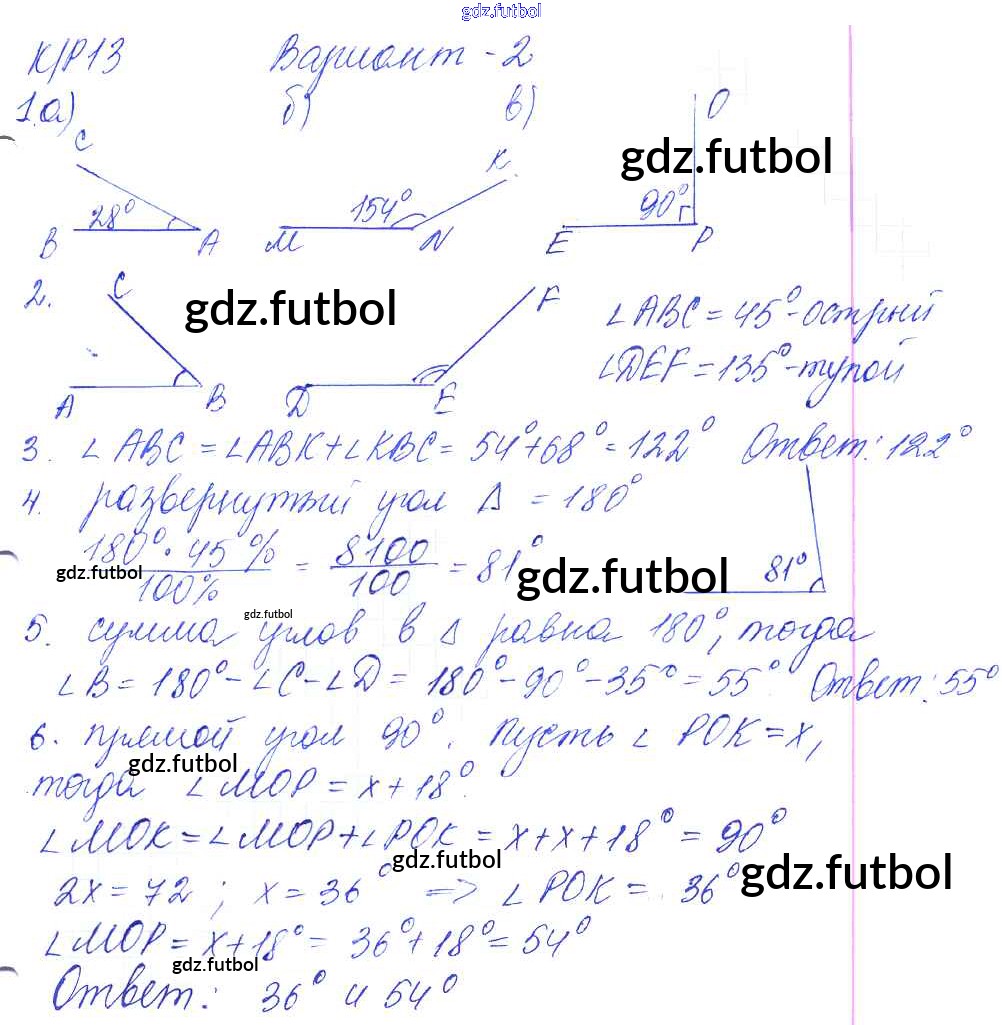 gdz.futbol
К/Р13 Вариант - 2
1.а) б) в)
C K O
gdz.futbol
28° 154° 90°
B A M N E P
2. C F
gdz.futbol
∠ABC = 45° - острый
∠DEF = 135° - тупой
A B D E
3. ∠ABC = ∠ABK + ∠KBC = 54° + 68° = 122° Ответ: 122°
4. развернутый угол Δ = 180°
180° · 45% / 100% = 8100 / 100 = 81° 81°
gdz.futbol gdz.futbol
gdz.futbol
5. сумма углов в Δ равна 180°, тогда
∠B = 180° - ∠C - ∠D = 180° - 90° - 35° = 55° Ответ: 55°
6. прямой угол 90°. Пусть ∠POK = x,
gdz.futbol
тогда ∠MOP = x + 18°.
∠MOK = ∠MOP + ∠POK = x + x + 18° = 90°
gdz.futbol gdz.futbol
2x = 72 ; x = 36° => ∠POK = 36°
∠MOP = x + 18° = 36° + 18° = 54°
gdz.futbol
Ответ: 36° и 54°